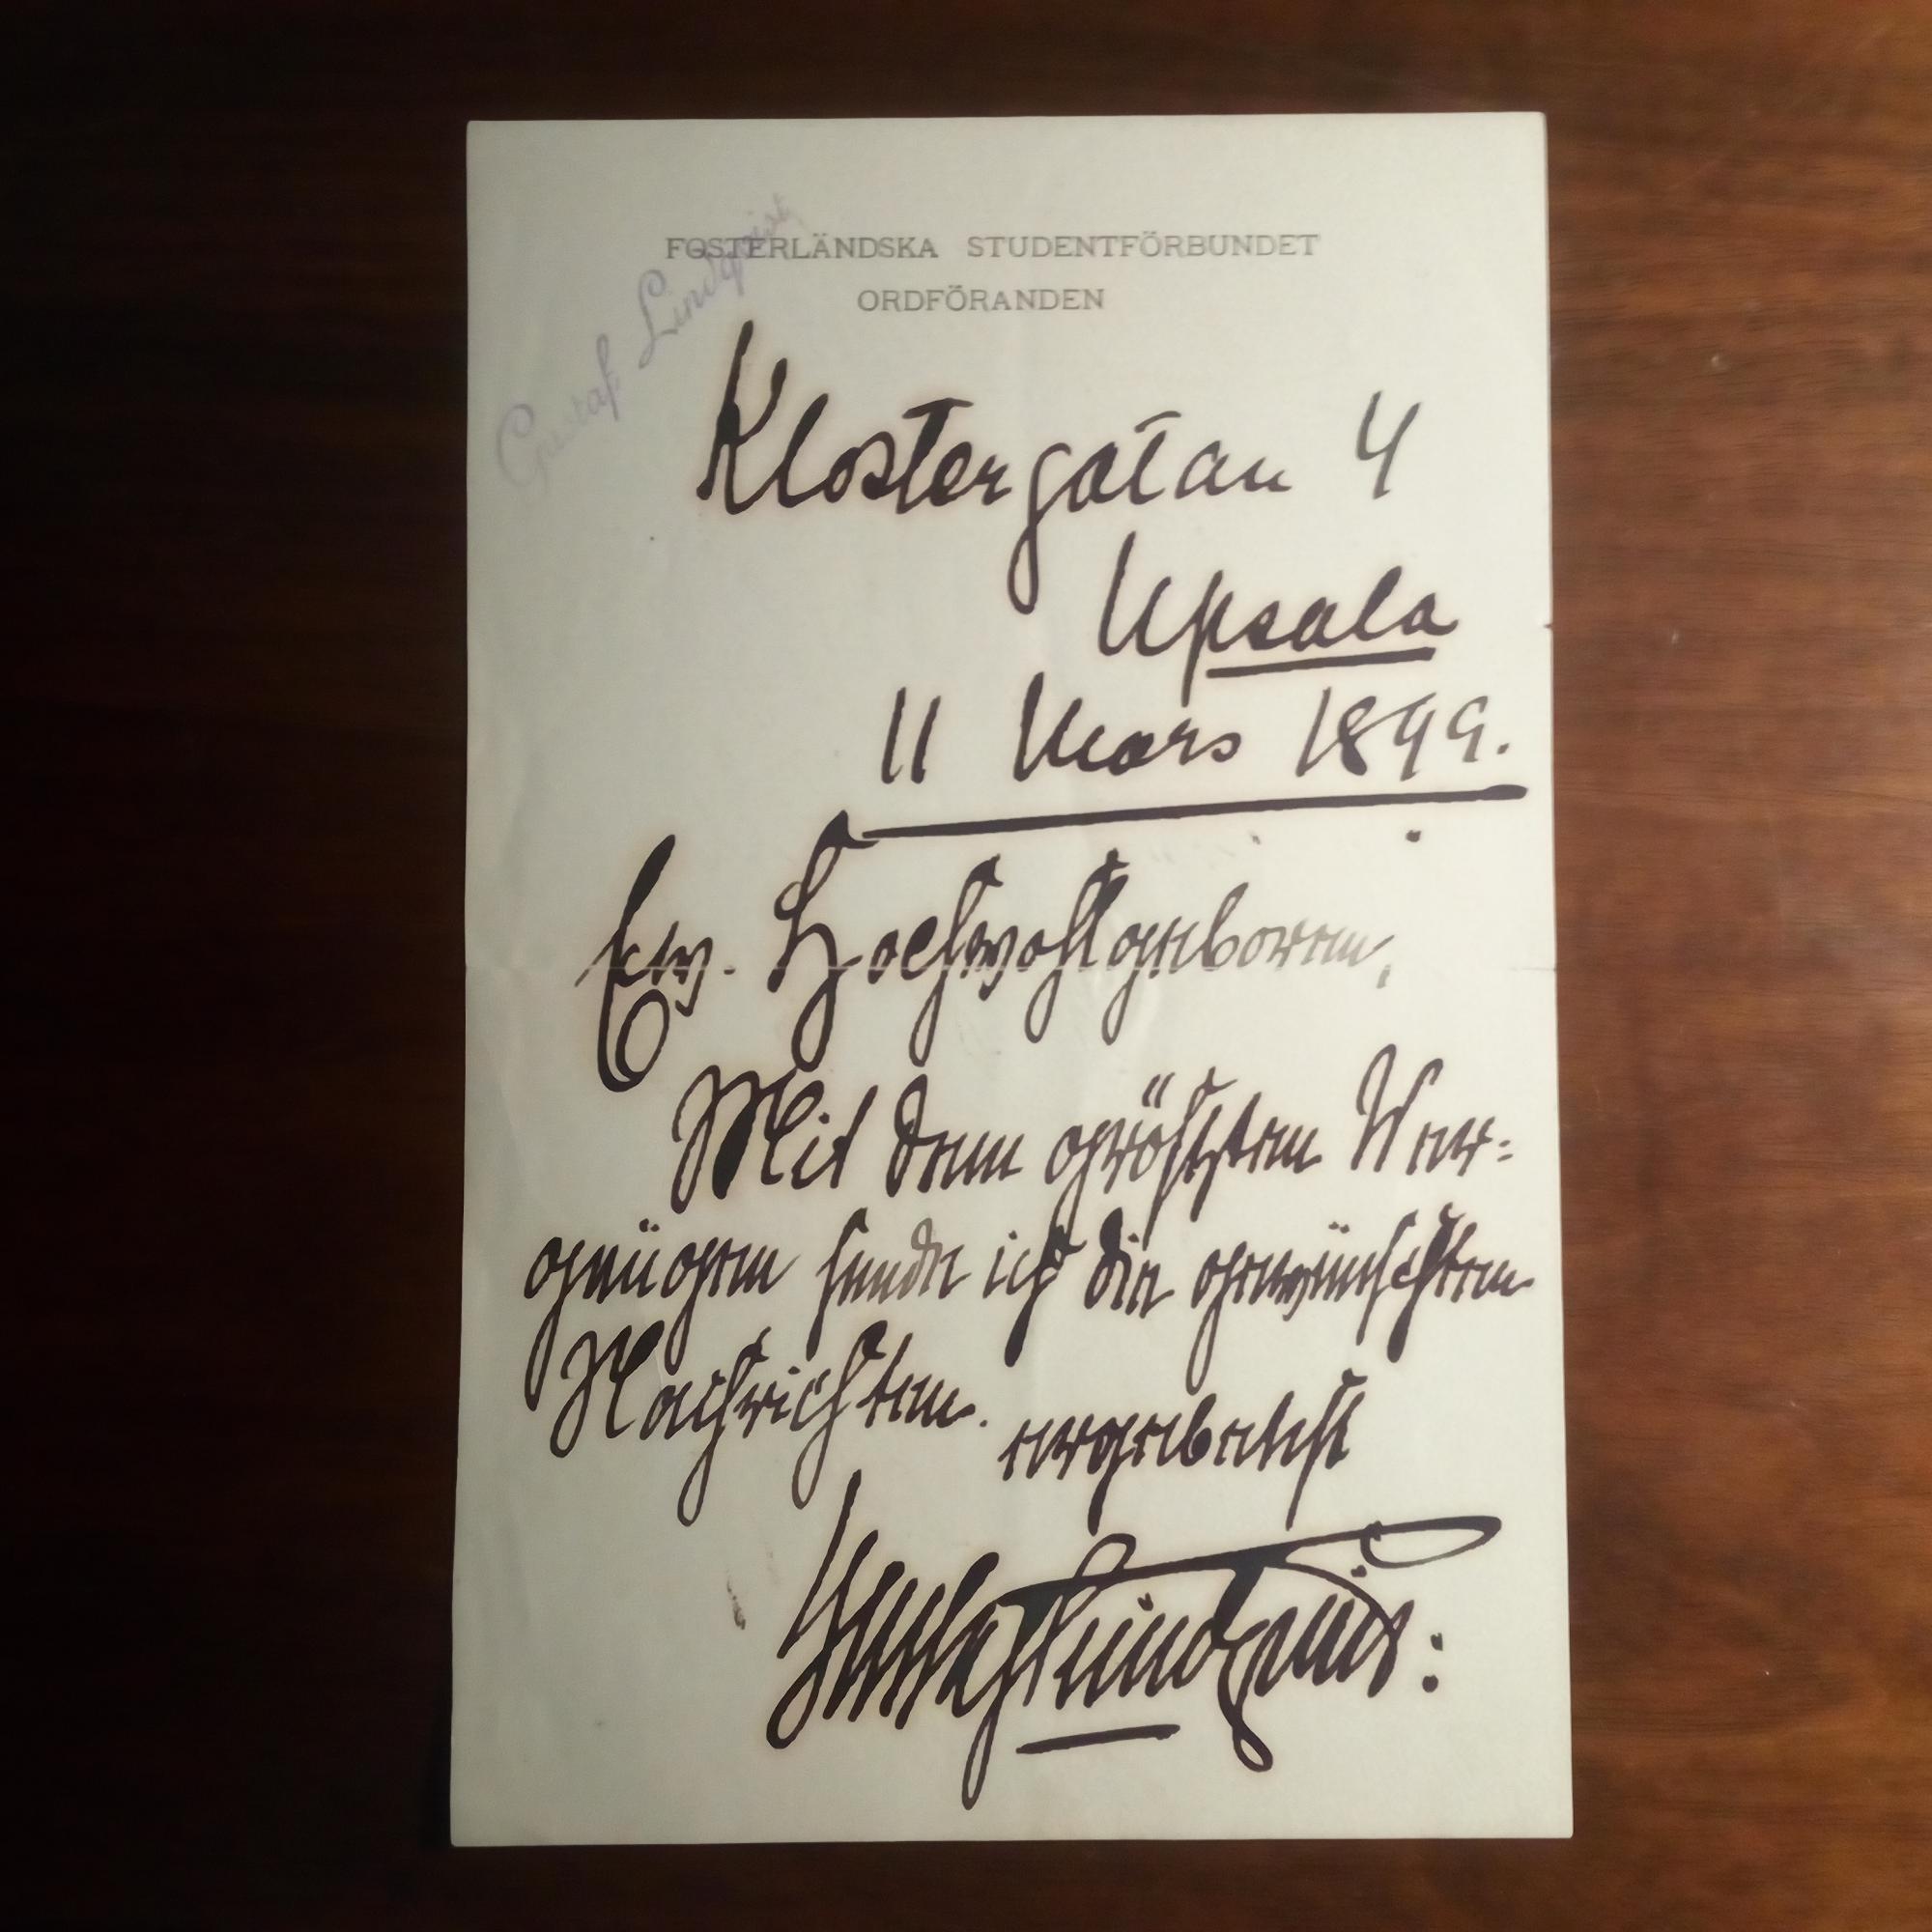 FOSTERLÄNDSKA STUDENTFÖRBUNDET
ORDFÖRANDEN
Gustaf Lindqvist
Klostergatan 4
Upsala
11 Mars 1899.
Ew. Hochwohlgeboren,
Mit dem größten Ver=
gnügen sende ich die gewünschten
Nachrichten.
ergebenst
Gustaf Lindqvist: